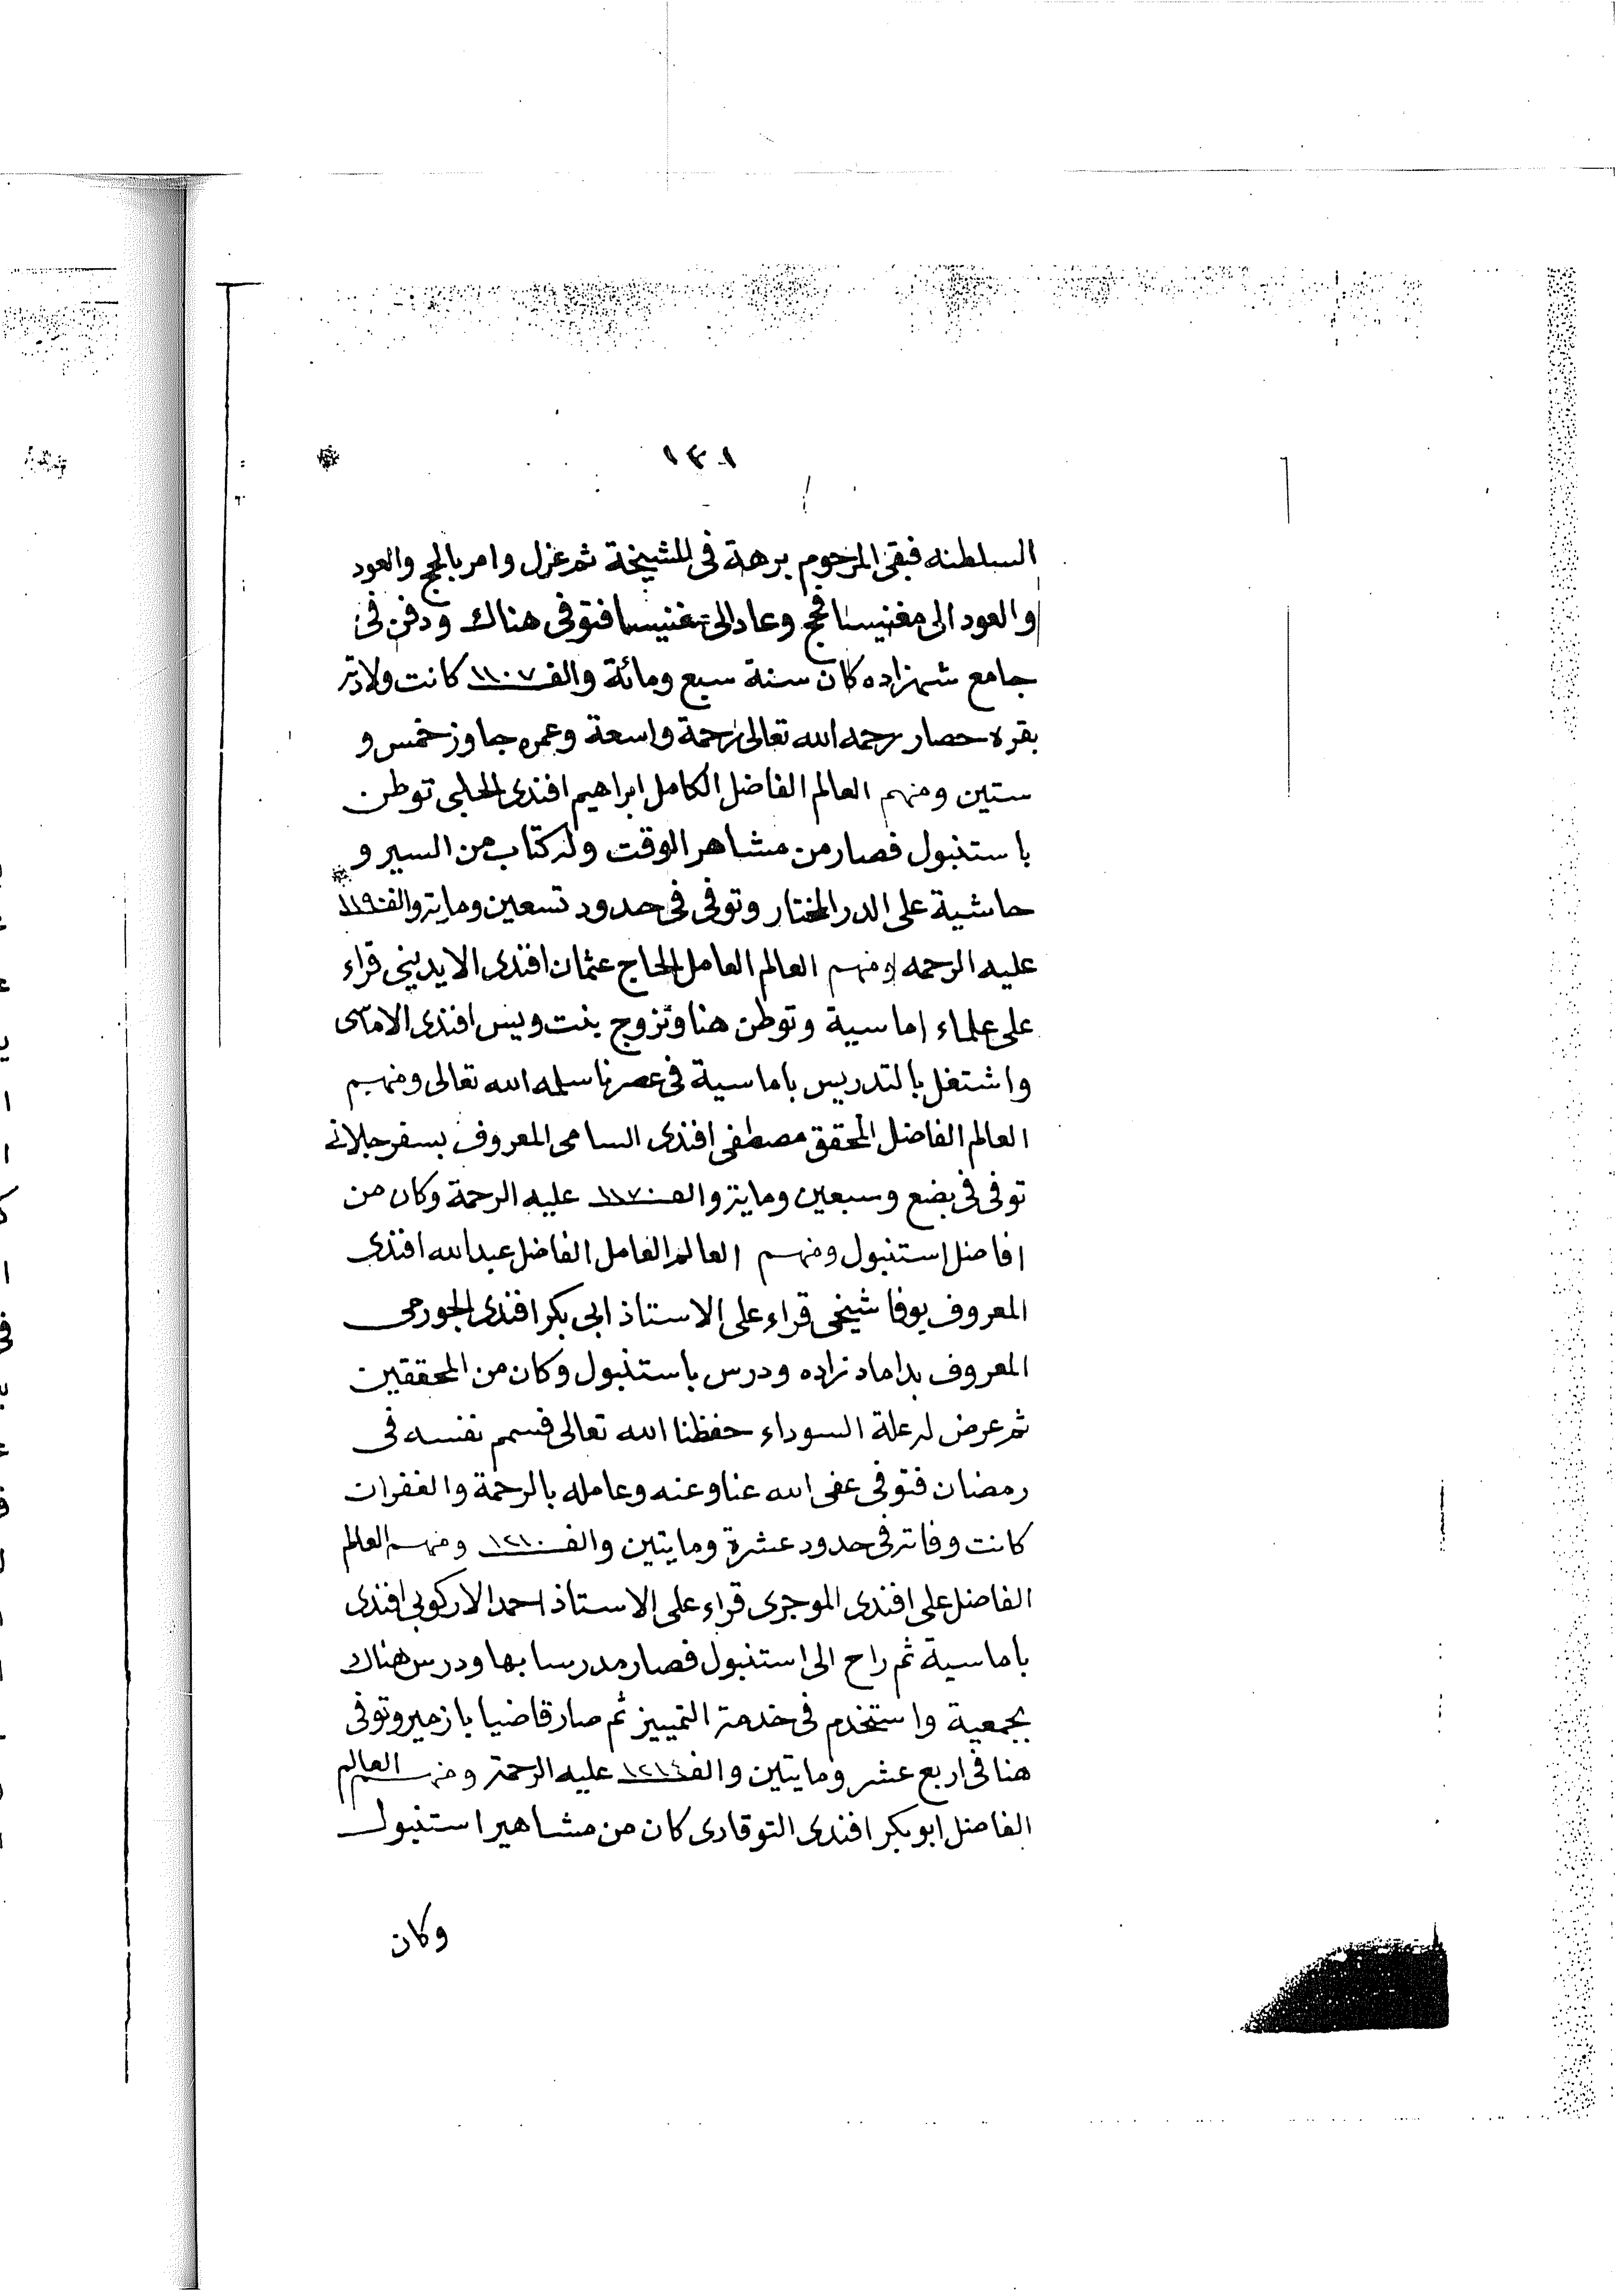 ١٣١
السلطنه فبقى المرحوم برهة فى المشيخة ثم عزل وامر بالحج والعود
والعود الى مغنيسا فحج وعاد الى مغنيسا فتوفى هناك ودفن فى
جامع شهزاده كان سنة سبع ومائة والف ١١٠٧ كانت ولادته
بقره حصار رحمه الله تعالى رحمة واسعة وعمره جاوز خمس و
ستين ومنهم العالم الفاضل الكامل ابراهيم افندى الحلبى توطن
باستنبول فصار من مشاهر الوقت وله كتاب من السير و
حاشية على الدر المختار وتوفى فى حدود تسعين ومايه والف ١١٩٠
عليه الرحمه ومنهم العالم العامل الحاج عثمان افندى الايدينى قراء
على علماء اماسية وتوطن هنا وتزوج بنت ويس افندى الاماسى
واشتغل بالتدريس باماسية فى عصرنا سلمه الله تعالى ومنهم
العالم الفاضل المحقق مصطفى افندى السامى المعروف بسفرجلانى
توفى فى بضع وسبعين ومايه والف ١١٧٠ عليه الرحمة وكان من
افاضل استنبول ومنهم العالم العامل الفاضل عبدالله افندى
المعروف بوفا شيخى قراء على الاستاذ ابى بكر افندى الجورمى
المعروف بداماد زاده ودرس باستنبول وكان من المحققين
ثم عرض له علة السوداء حفظنا الله تعالى فسمم نفسه فى
رمضان فتوفى عفى الله عنا وعنه وعامله بالرحمة والغفران
كانت وفاته فى حدود عشرة ومايتين والف ١٢١٠ ومنهم العالم
الفاضل على افندى الموجرى قراء على الاستاذ احمد الاركوبى افندى
باماسية ثم راح الى استنبول فصار مدرسا بها ودرس هناك
بجمعية واستخدم فى خدمة التمييز ثم صار قاضيا بازمير وتوفى
هنا فى اربع عشر ومايتين والف ١٢١٤ عليه الرحمة ومنهم العالم
الفاضل ابوبكر افندى التوقادى كان من مشاهير استنبول
وكان